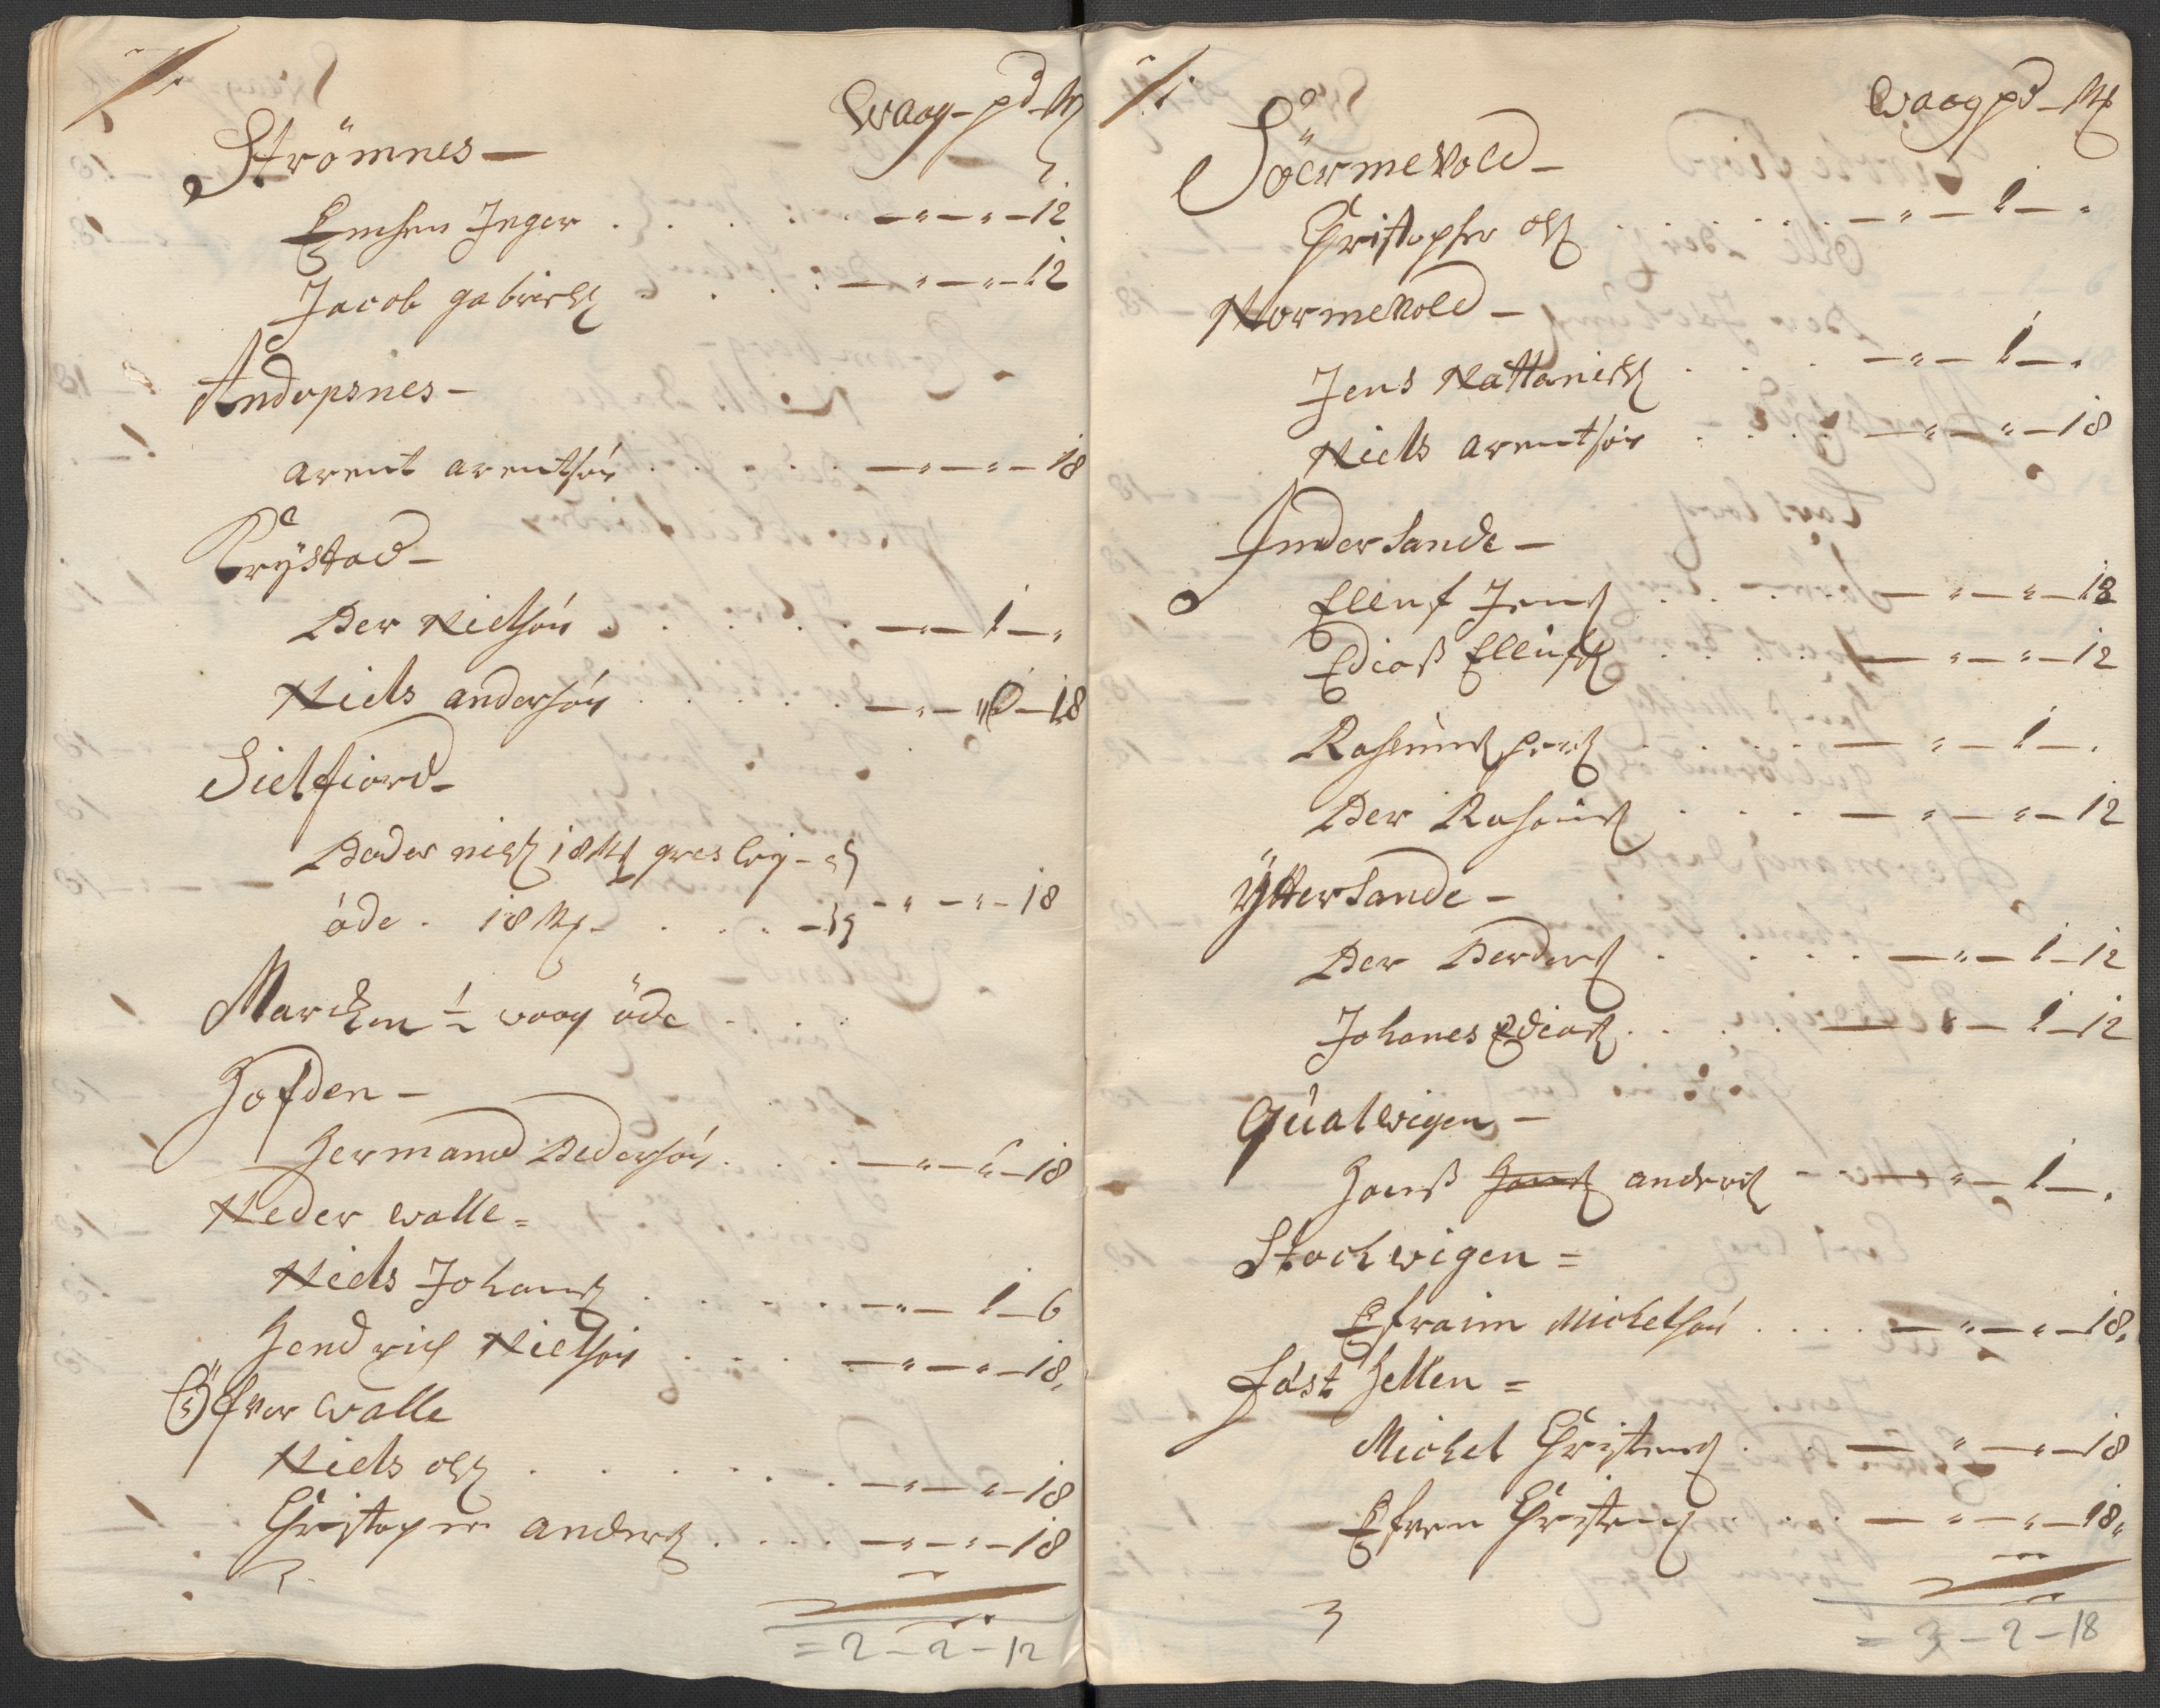 Waag - pd - M
Strömnes -
Enchen Inger . . . . . - " - " - 12
Jacob gabriels . . . . - " - " - 12
Andopsnes -
arent arentsön . . . . . - " - " - 18
Krÿstad -
Per Nielsön . . . . . - " - 1 - "
Niels andersön . . . . . - " - " - 18
Sielfiord -
Peder niels 18 M
öde . 18 M - . . . - " - " - 18
Marchen ½ waag öde - . .
Hofden -
Hermand Pedersön . . . . - " - " - 18
Neder walle =
Niels Johans . . . . . - " - 1 - 6
Hendrich Nielsön . . . . - " - " - 18,
Öfver walle
Niels ols . . . . . . - " - " - 18
Christopher anders . . . . - " - " - 18
= 2 - 2 - 12
Waag pd - M
Söermevold -
Christopher ols . . . . . - " - 1 - "
Normevold -
Jens Nattaniels . . . - " - 1 - "
Niels arentsön . . . . - " - " - 18
Inder Sande -
Elluf Jens . . . . - " - " - 18
Edias Ellufs . . . . - " - " - 12
Rasmus pers . . . . - " - 1 - "
Per Rasmus . . . - " - " - 12
Ÿtter Sande -
Per Peders . . . . - " - 1 - 12
Johanes Edias . . . . - " - 1 - 12
Qualwigen -
Hans Hans anders - - " - 1 - "
Stochwigen =
Efraim Michelsön . . . . - " - " - 18,
Fast Hellen =
Michel Christens . . . - " - " - 18
Efren Christens . . . - " - " - 18,
= 3 - 2 - 18